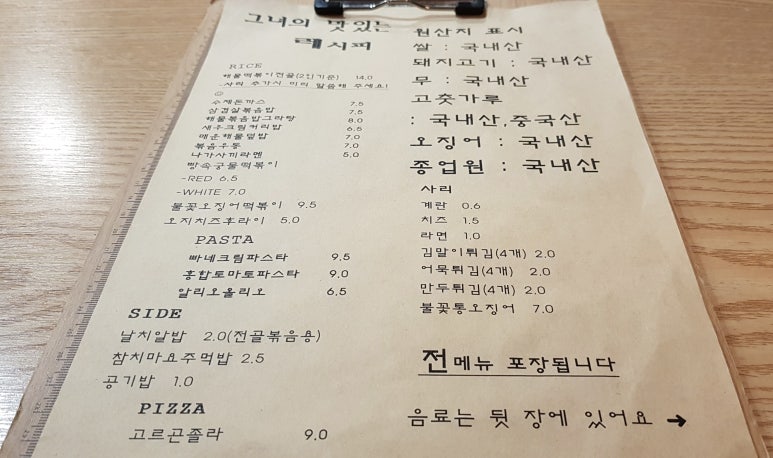 그녀의 맛있는
레시피
RICE
해물떡볶이전골(2인기준) 14.0
-사리 추가시 미리 말씀해 주세요!
☺
수제돈까스 7.5
삼겹살볶음밥 7.5
해물볶음밥그라탕 8.0
새우크림커리밥 6.5
매운해물덮밥 7.0
볶음우동 7.0
나가사끼라멘 5.0
빵속궁물떡볶이
-RED 6.5
-WHITE 7.0
불꽃오징어떡볶이 9.5
오지치즈후라이 5.0
PASTA
빠네크림파스타 9.5
홍합토마토파스타 9.0
알리오올리오 6.5
SIDE
날치알밥 2.0(전골볶음용)
참치마요주먹밥 2.5
공기밥 1.0
PIZZA
고르곤졸라 9.0
원산지 표시
쌀 : 국내산
돼지고기 : 국내산
무 : 국내산
고춧가루
: 국내산,중국산
오징어 : 국내산
종업원 : 국내산
사리
계란 0.6
치즈 1.5
라면 1.0
김말이튀김(4개) 2.0
어묵튀김(4개) 2.0
만두튀김(4개) 2.0
불꽃통오징어 7.0
전메뉴 포장됩니다
음료는 뒷 장에 있어요 →